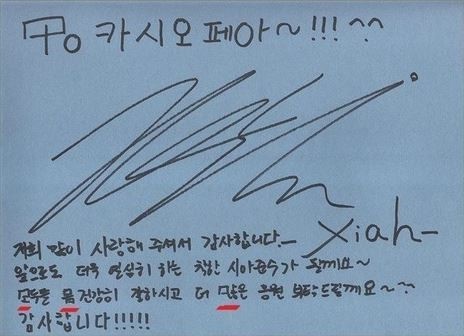 To 카시오페아~!!! ^^
Xiah-
저희 많이 사랑해 주셔서 감사합니다_
앞으로도 더욱 열심히 하는 착한 시아준수가 될께요~
모두들 몸 건강히 잘하시고 더 많은 응원 부탁드릴게요~^^
감사합니다!!!!!